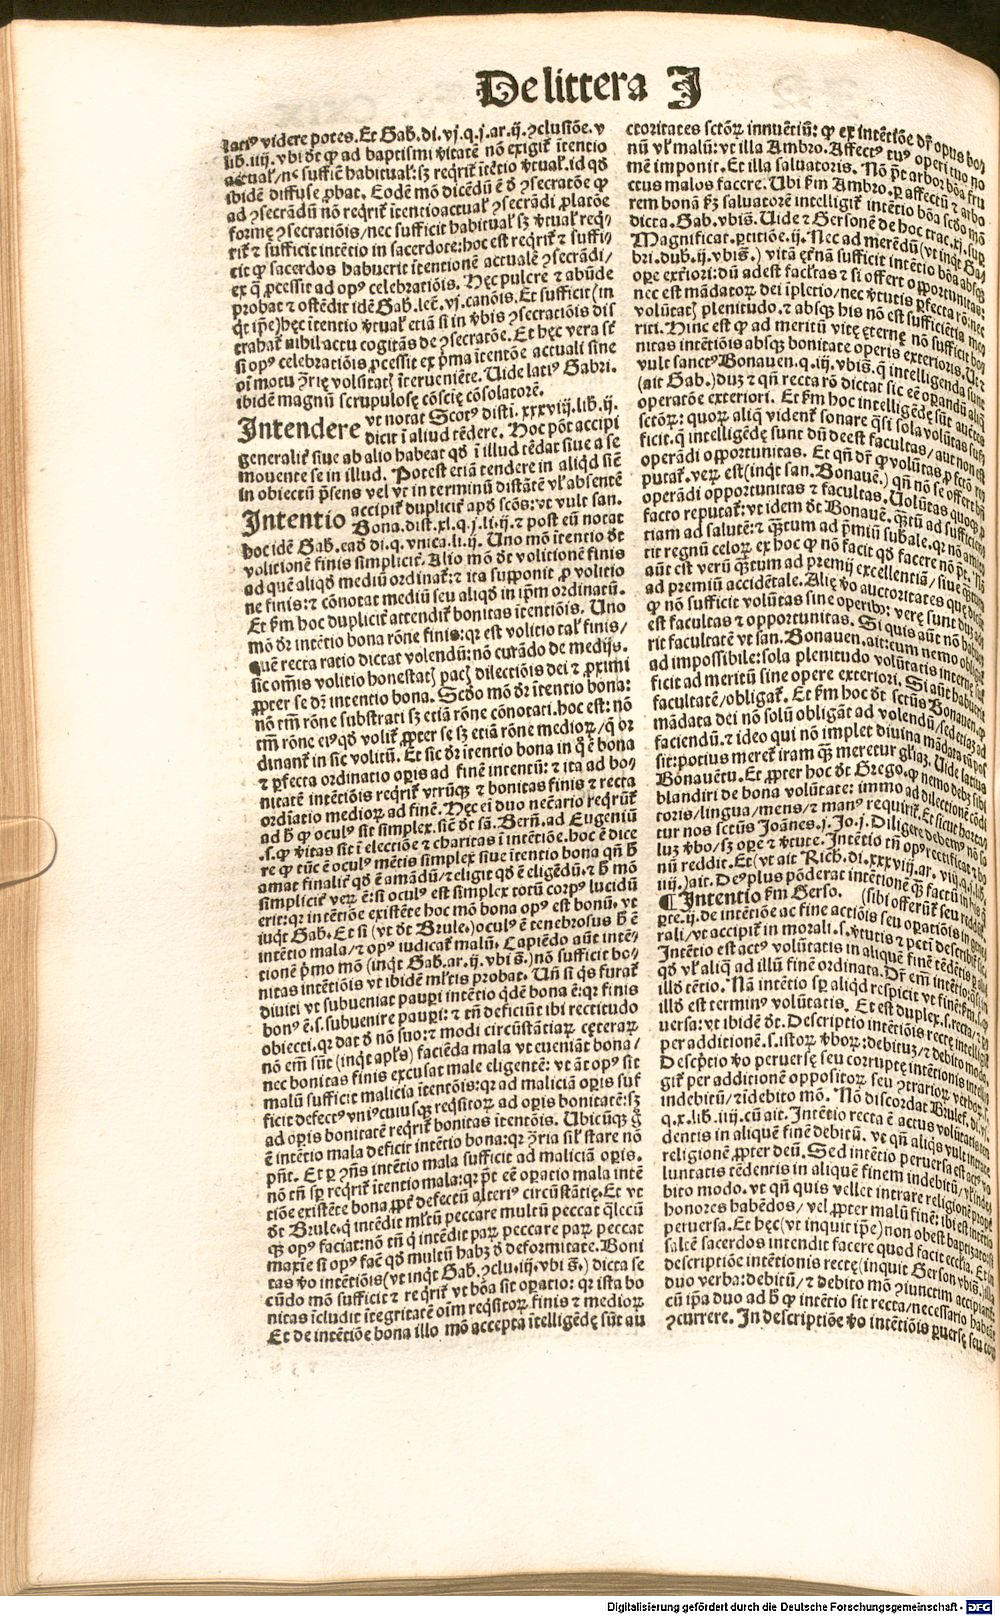 De littera I
latiꝰ videre potes. Et Gab. di. vj. q. j. ar. ij. ꝯclusiōe. v
lib. iiij. vbi dc̄t ꝙ ad baptismi v̓itatē nō exigit̉ itentio
actual̓/ nec sufficiē habitual̓: sꝫ reqrit̉ itētio v̓tual̓. id qđ
ibidē diffuse ꝓbat. Eodē mō dicēdū ē đ ꝯsecratōe ꝙ
ad ꝯsecrādū nō reqrit̉ itentio actual̓ ꝯsecrādi ꝓlatōe
forme ꝯsecratiōis/ nec sufficit habitual̓ sꝫ v̓tual̓ req-
rit̉ ⁊ sufficit intētio in sacerdote: hoc est reqrit̉ ⁊ suffi-
cit ꝙ sacerdos habuerit itentionē actualē ꝯsecrādi/
ex q̄ ꝓcessit ad opꝰ celebratiōis. Hęc pulcre ⁊ abūde
probat ⁊ ostēdit idē Gab. lec̄. vj. canōis. Et sufficit (in
qt ip̄e) hęc itentio v̓tual̓ etiā si in v̓bis ꝯsecratiōis dis
trahat̉ nihil actu cogitās de ꝯsecratōe. Et hęc vera sūt
si opꝰ celebratiōis ꝓcessit ex p̄ma itentōe actuali sine
oī motu ꝯ̄rię volūtatꝭ iterueniēte. Uide latiꝰ Gabri.
ibidē magnū scrupulosę cōscię cōsolatorē.
Intendere vt notat Scotꝰ disti. xxxviij. lib. ij.
dicit̉ i aliud tēdere. Hoc pōt accipi
generalit̉ siue ab alio habeat qđ i illud tēdat siue a se
mouente se in illud. Potest etiā tendere in aliqđ siē
in obiectū p̄sens vel vt in terminū distātē vl̓ absentē
Intentio accipit̉ duplicit̉ apđ scōs: vt vult san.
Bona. dist. xl. q. j. li. ij. ⁊ post eū notat
hoc idē Gab. eađ di. q. vnica. li. ij. Uno mō itentio dc̄t
volitionē finis simplicit̉. Alio mō dc̄t volitionē finis
ad quē aliqđ mediū ordinat̉: ⁊ ita supponit ꝓ volitio
ne finis: ⁊ cōnotat mediū seu aliqđ in ip̄m ordinatū.
Et s̄m hoc duplicit̉ attendit̉ bonitas itentiōis. Uno
mō dr̄ intētio bona rōne finis: qr est volitio tal̓ finis/
quē recta ratio dictat volendū: nō curādo de medijs.
sic om̄is volitio honestatꝭ pacꝭ dilectiōis dei ⁊ ꝓximi
ꝓpter se dr̄ intentio bona. Scđo mō dr̄ itentio bona:
nō tm̄ rōne substrati sꝫ etiā rōne cōnotati. hoc est: nō
tm̄ rōne eiꝰ qđ volit̉ ꝓpter se sꝫ etiā rōne medioꝝ/ q̄ or
dinant̉ in sic volitū. Et sic dr̄ itentio bona in q̄ ē bona
⁊ ꝑfecta ordinatio oꝑis ad finē intentū: ⁊ ita ad bo-
nitatē intētiōis reqrit̉ vtrūqꝫ ⁊ bonitas finis ⁊ recta
ordīatio medioꝝ ad finē. Hęc eī duo nec̄ario reqrūt̉
ad ħ ꝙ oculꝰ sit simplex. siē dc̄t sā. Berñ. ad Eugeniū
.s. ꝙ v̓itas sit i electiōe ⁊ charitas i intētiōe. hoc ē dice
re ꝙ tūc ē oculꝰ mētis simplex siue itentio bona qn̄ ħ
amat finalit̉ qđ ē amādū/ ⁊ eligit qđ ē eligēdū. ⁊ ħ mō
simplicit̉ veꝝ ē: si oculꝰ est simplex totū corpꝰ lucidū
erit: qr intētiōe existēte hoc mō bona opꝰ est bonū. vt
inqt Gab. Et si (vt dc̄t Brule.) oculꝰ ē tenebrosus ħ ē
intētio mala/ ⁊ opꝰ iudicat̉ malū. Capiēdo aūt intē-
tionē p̄mo mō (inqt Gab. ar. ij. vbi s̄.) nō sufficit bo-
nitas intētiōis vt ibidē ml̓tis probat. Uñ si qs furat̉
diuiti vt subueniat pauꝑi intētio qdē bona ē: qr finis
bonꝰ ē. s. subuenire pauꝑi: ⁊ tn̄ deficiūt ibi rectitudo
obiecti. qr dat đ nō suo: ⁊ modi circūstātiaꝝ cęteraꝝ
nō em̄ sūt (inqt apl̓s) faciēda mala vt eueniāt bona/
nec bonitas finis excusat male eligentē: vt āt opꝰ sit
malū sufficit malicia itentōis: qr ad maliciā oꝑis suf
ficit defectꝰ vniꝰcuiusqꝫ reqsitoꝝ ad oꝑis bonitatē: sꝫ
ad oꝑis bonitatē reqrit̉ bonitas itentōis. Ubicūqꝫ g̊
ē intētio mala deficit intētio bona: qr ꝯ̄ria sil̓ stare nō
pn̄t. Et ꝑ ꝯn̄s intētio mala sufficit ad maliciā oꝑis.
nō tn̄ sp̄ reqrit̉ itentio mala: qr p̄t eē oꝑatio mala intē
tiōe existēte bona ꝓpt̉ defectū alteriꝰ circūstātię. Et vt
dc̄t Brule. q̇ intēdit ml̓tū peccare multū peccat q̄lecū
qꝫ opꝰ faciat: nō tn̄ q̇ intēdit paꝝ peccare paꝝ peccat
maxīe si opꝰ fac̄ qđ multū habꝫ đ deformitate. Boni
tas v̓o intētiōis (vt inqt Gab. ꝯclu. iij. vbi s̄.) dicta se
cūdo mō sufficit ⁊ reqrit̉ vt bōa sit oꝑatio: qr ista bo
nitas icludit itegritatē oīm reqsitoꝝ finis ⁊ medioꝝ
Et de intētiōe bona illo mō accepta itelligēdę sūt au
ctoritates sctōꝝ innuētiū: ꝙ ex intētiōe dr̄ opus boꝫ
nū vl̓ malū: vt illa Ambro. Affectꝰ tuꝰ operi tuo no
mē imponit. Et illa saluatoris. Nō p̄t arbor bōa fru
ctus malos facere. Ubi s̄m Ambro. ꝑ affectū ⁊ arbo
rem bonā s̄ꝫ saluatorē intelligit̉ intētio bōa scđo mō
dicta. Gab. vbi s̄. Uide ⁊ Gersonē de hoc trac. xj. sup
Magnificat. ꝑtitiōe. ij. Nec ad merēdū (vt inqt Ga
bri. dub. ij. vbi s̄.) vitā ęt̉nā sufficit intētio bōa absqꝫ
oꝑe ext̓iori: dū adest facl̓tas ⁊ si offert̉ opportunitas:
nec est mādatoꝝ dei ipletio/ nec v̓tutis ꝑfecta rō: nec
volūtatꝭ plenitudo. ⁊ absqꝫ his nō est sufficiētia me
riti. Hinc est ꝙ ad meritū vitę ęternę nō sufficit boꝫ
nitas intētiōis absqꝫ bonitate operis exterioris. Ut
vult sanctꝰ Bonauen. q. iij. vbi s̄. q̄ intelligenda sunt
(ait Gab.) duꝫ ⁊ qn̄ recta rō dictat sic eē oꝑandū aliqđ
operatōe exteriori. Et s̄m hoc intelligēdę sūt aucte
sctōꝝ: quoꝝ aliq̄ vident̉ sonare q̄si sola volūtas suf
ficit. q̄ intelligēdę sunt dū deest facultas/ aut non est
operādi opportunitas. Et qn̄ dr̄ ꝙ volūtas ꝓ fctō re
putat̉. veꝝ est (inqt san. Bonauē.) qn̄ nō se offert
operādi opportunitas ⁊ facultas. Uolūtas quoqꝫ ꝓ
facto reputat̉: vt idem dc̄t Bonauē. q̄ꝫtū ad sufficien
tiam ad salutē: ⁊ q̄ꝫtum ad p̄miū sub̄ale. qr nō amit
tit regnū celoꝝ ex hoc ꝙ nō facit qđ facere nō p̄t. Nō
aūt est verū q̄ꝫtum ad premij excellentiā/ siue q̄ꝫtum
ad premiū accidētale. Alię v̓o auctoritates quę dicūt
ꝙ nō sufficit volūtas sine operibꝰ: verę sunt dum ad
est facultas ⁊ opportunitas. Si quis aūt nō habue
rit facultatē vt san. Bonauen. ait: cum nemo obliget̉
ad impossibile: sola plenitudo volūtatis interne suf
ficit ad meritū sine opere exteriori. Si aūt habuerit
facultatē/ obligat̉. Et s̄m hoc dc̄t sctūs Bonauen. ꝙ
mādata dei nō solū obligāt ad volendū/ sed etiaꝫ ad
faciendū. ⁊ ideo qui nō implet diuina mādata cū pos
sit: potius meret̉ iram q̄ꝫ meretur gl̓iaꝫ. Uide latius
Bonauētu. Et ꝓpter hoc dc̄t Grego. ꝙ nemo debꝫ sibi
blandiri de bona volūtate: immo ad dilectionē cōdi
toris/ lingua/ mens/ ⁊ manꝰ requirit̉. Et sicut hortat
tur nos sctūs Joānes. j. Jo. j. Diligere debemꝰ nō so
luꝫ v̓bo/ sꝫ oꝑe ⁊ v̓tute. Intētio tn̄ opꝰ rectificat ⁊ bo
nū reddit. Et (vt ait Rich. di. xxxviij. ar. viij. q. j. lib.
iij.) ait. Deꝰ plus pōderat intētionē q̄ꝫ factū in his q̄
¶ Intentio s̄m Gerso. (sibi offerūt̉ seu reddūt̉.
ꝑte. ij. de intētiōe ac fine actiōis seu oꝑatiōis in gene
rali/ vt accipit̉ in morali. s. v̓tutis ⁊ pctī describit̉ sic.
Intētio est actꝰ volūtatis in aliquē finē tēdētis ꝑ aliud
qđ vl̓ aliq̄ ad illū finē ordinata. Dr̄ em̄ intētio q̄si in
illđ tētio. Nā intētio sp̄ aliqđ respicit vt finē: s̄m ꝙ
illđ est terminꝰ volūtatis. Et est duplex. s. recta/ ⁊ ꝑ
uersa: vt ibidē dc̄t. Descriptio intētiōis rectę intelligit̉
per additionē. s. istoꝝ v̓boꝝ: debituꝫ/ ⁊ debito modo.
Descp̄tio v̓o peruersę seu corruptę intētionis intelli
git̉ per additionē oppositoꝝ seu ꝯtrarioꝝ verboꝝ. s.
indebitū/ ⁊ idebito mō. Nō discordat Brulef. di. vj.
q. x. lib. iiij. cū ait. Intētio recta ē actus volūtatis ten
dentis in aliquē finē debitū. vt qn̄ aliqs vult intrare
religionē ꝓpter deū. Sed intētio peruersa est actꝰ vo
luntatis tēdentis in aliquē finem indebitū/ vl̓ inde
bito modo. vt qn̄ quis vellet intrare religionē propter
honores habēdos/ vel ꝓpter malū finē: ibi est intētio
peruersa. Et hęc (vt inquit ip̄e) non obest baptizatōi
saltē sacerdos intendit facere quod facit ecclīa. Et in
descriptiōe intētionis rectę (inquit Gerson vbi s̄.) illa
duo verba: debitū/ ⁊ debito mō ꝯiunctim accipiantur
cū ip̄a duo ad ħ ꝙ intētio sit recta/ necessario habeāt
ꝯcurrere. In descriptiōe v̓o intētiōis ꝑuersę seu cor
Digitalisierung gefördert durch die Deutsche Forschungsgemeinschaft - DFG